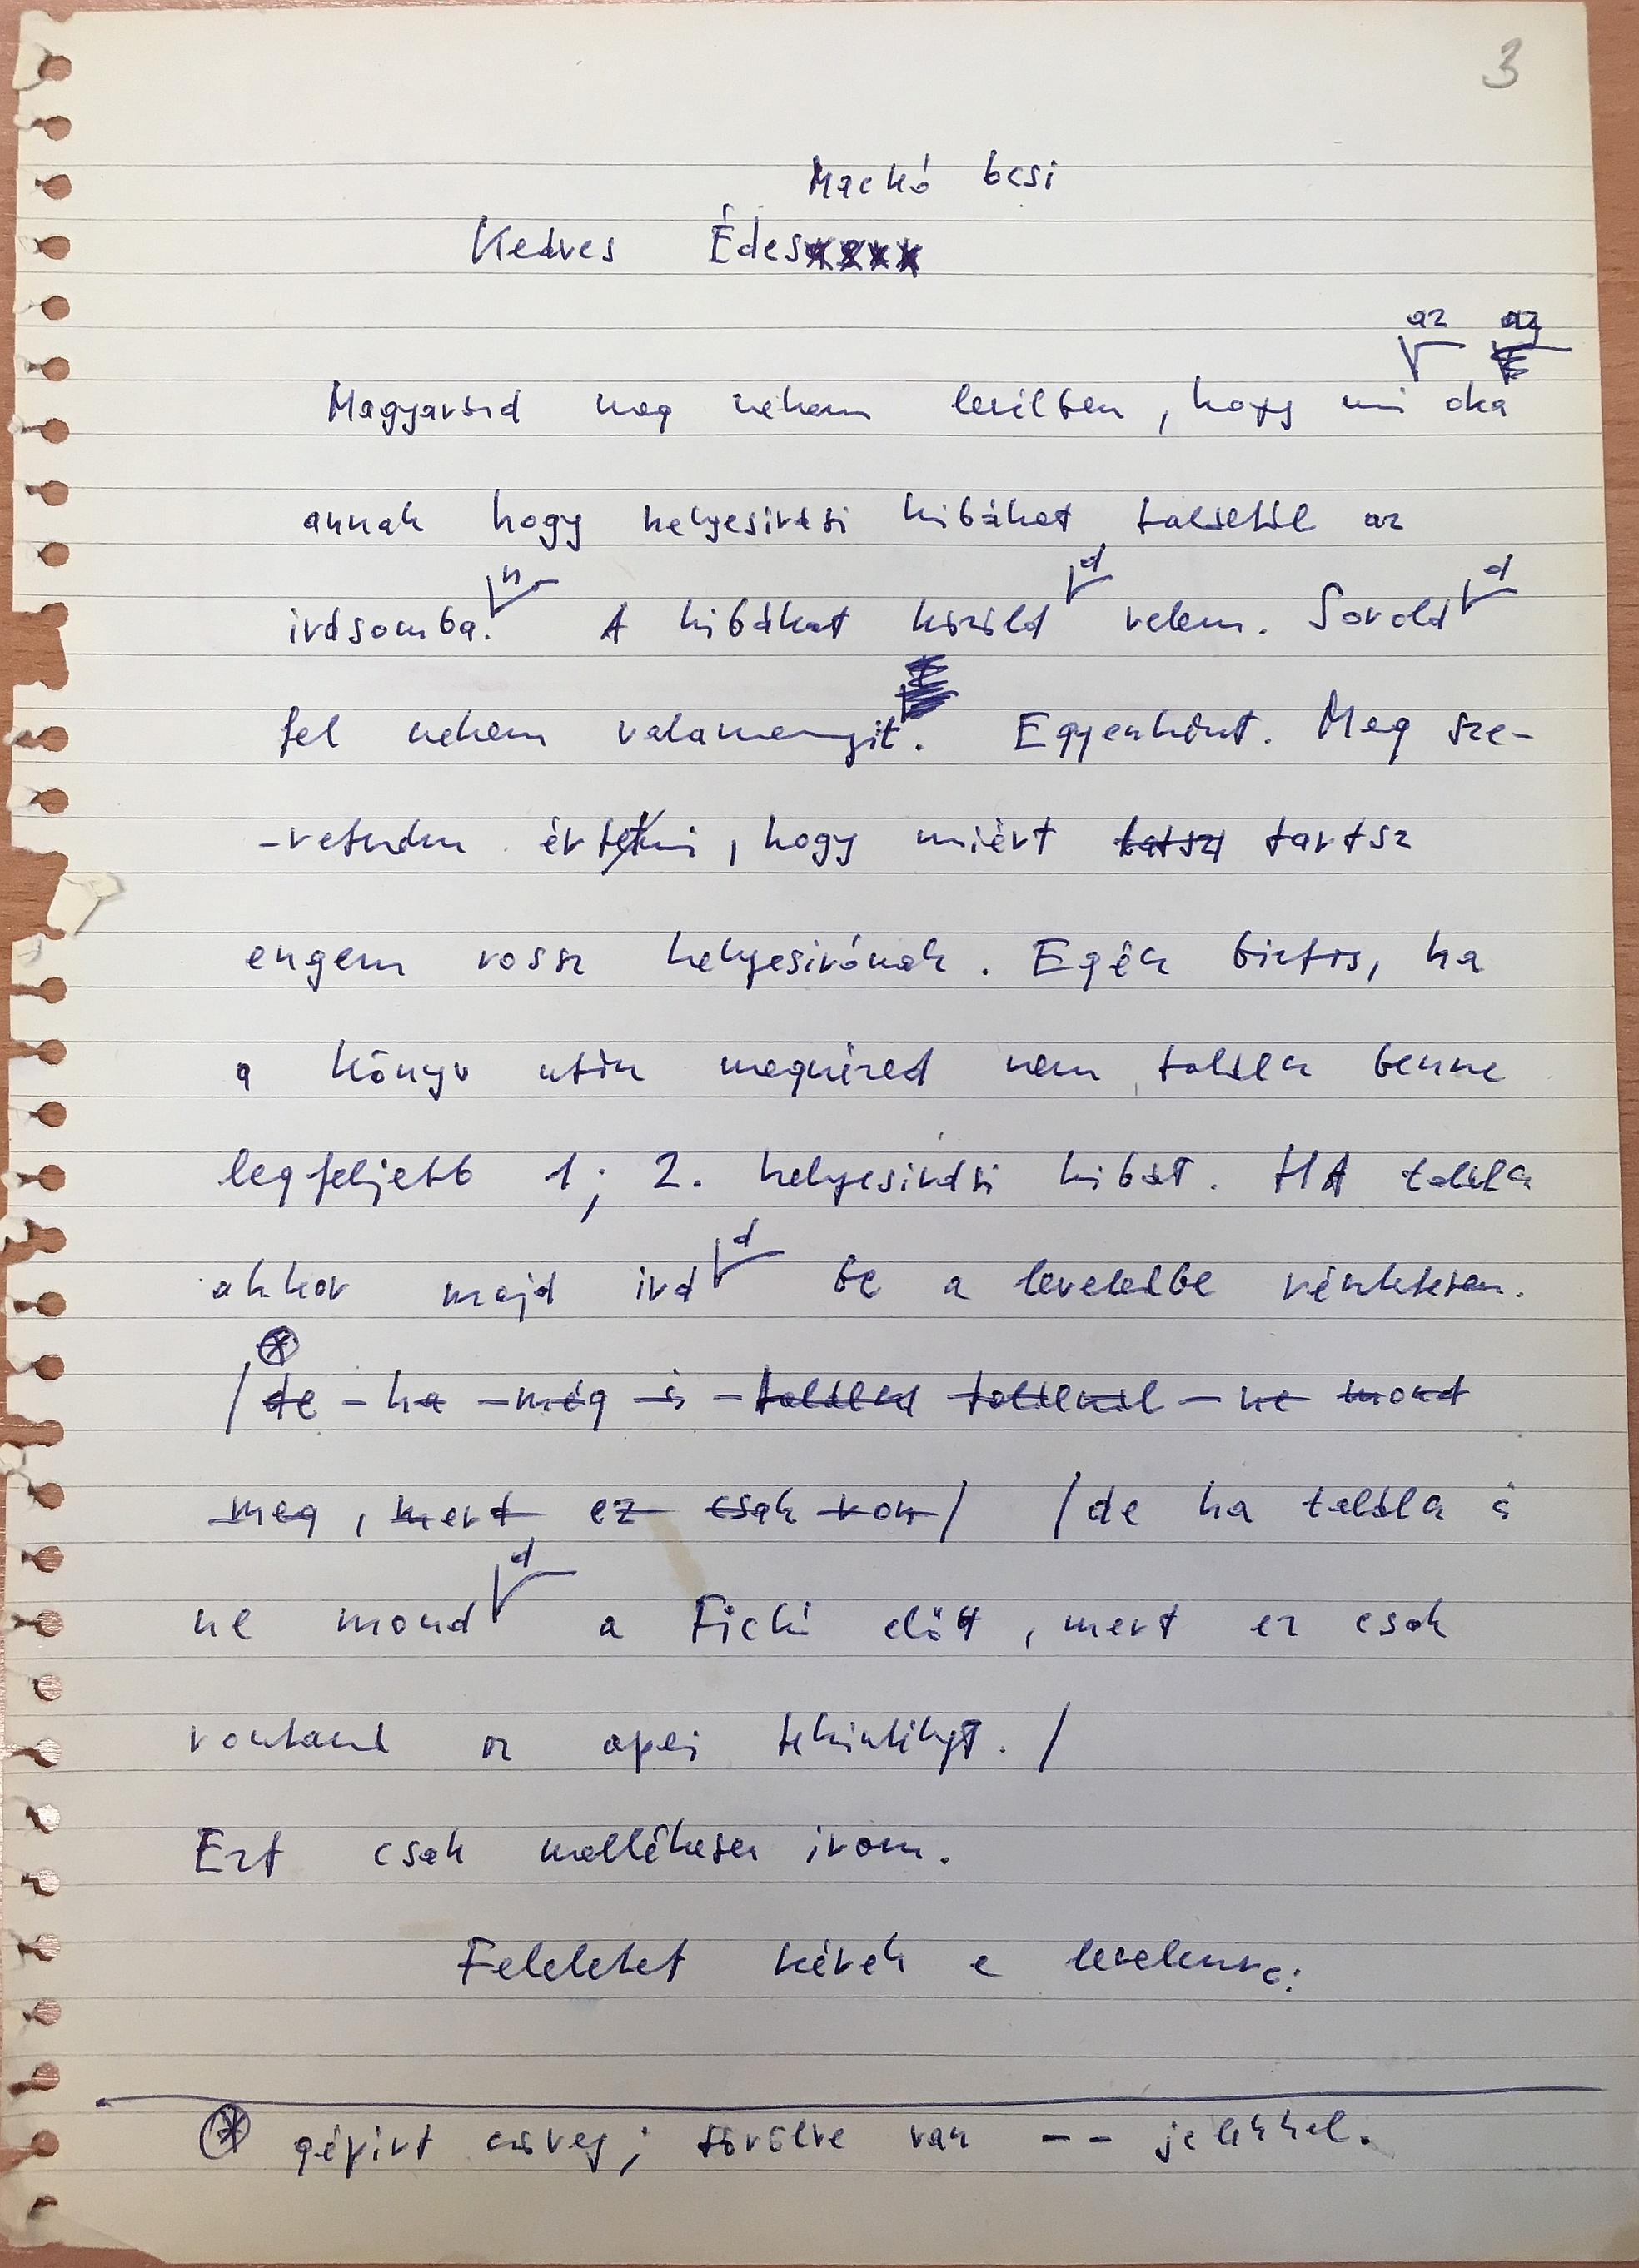 3
Mackó bcsi
Kedves Édesxxxx
az az
Magyarázd meg nekem levélben, hogy mi oka
annak hogy helyesirási hibákat találtál az
n d d
irásomba. A hibákat közöld velem. Sorold
fel nekem valamenyit. Egyenként. Meg sze-
-retném érteni, hogy miért tatsz tartsz
engem rossz helyesirónak. Egék biztos, ha
a könyv után megnézed nem találsz benne
legfeljebb 1; 2. helyesirási hibát. HA találsz
d
akkor majd ird be a leveledbe részletesen.
/de - ha - még - is - találsz találnál - ne mond
meg, mert ez csak ron/ /de ha találsz is
d
ne mond a Ficki előtt, mert ez csak
rontaná az apai tekintélyt. /
Ezt csak mellékesen irom.
Feleletet kérek e levelemre:
gépirt szöveg; törölve van -- jelekkel.